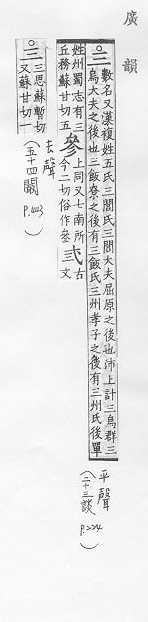 廣韻
三 數名又漢複姓五氏三閭氏三閭大夫屈原之後也沛上計三烏群三
烏大夫之後也三飯尞之後有三飯氏三州孝子之後有三州氏後單
姓州蜀志有三
丘務蘇甘切五
參 上同又七南所
今二切俗作叅
弎 古
文
平聲
(二十三談
p.224
)
三 三思蘇暫切
又蘇甘切一
去聲
(五十四闞
p.443
)